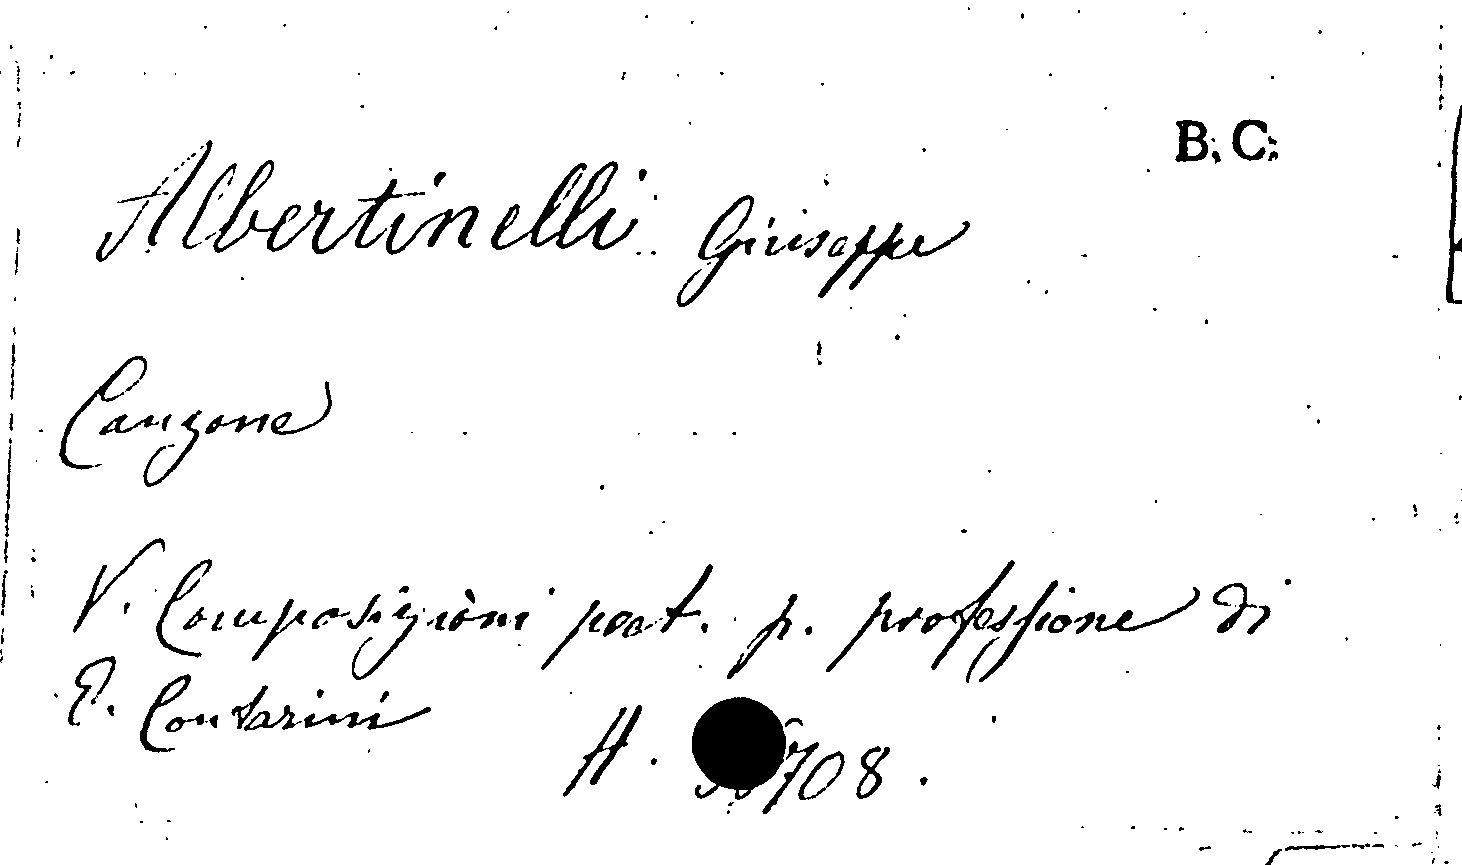 B. C.
Albertinelli Giuseppe
Canzone
V. Composizioni poet. p. professione di
E. Contarini
H. 708.